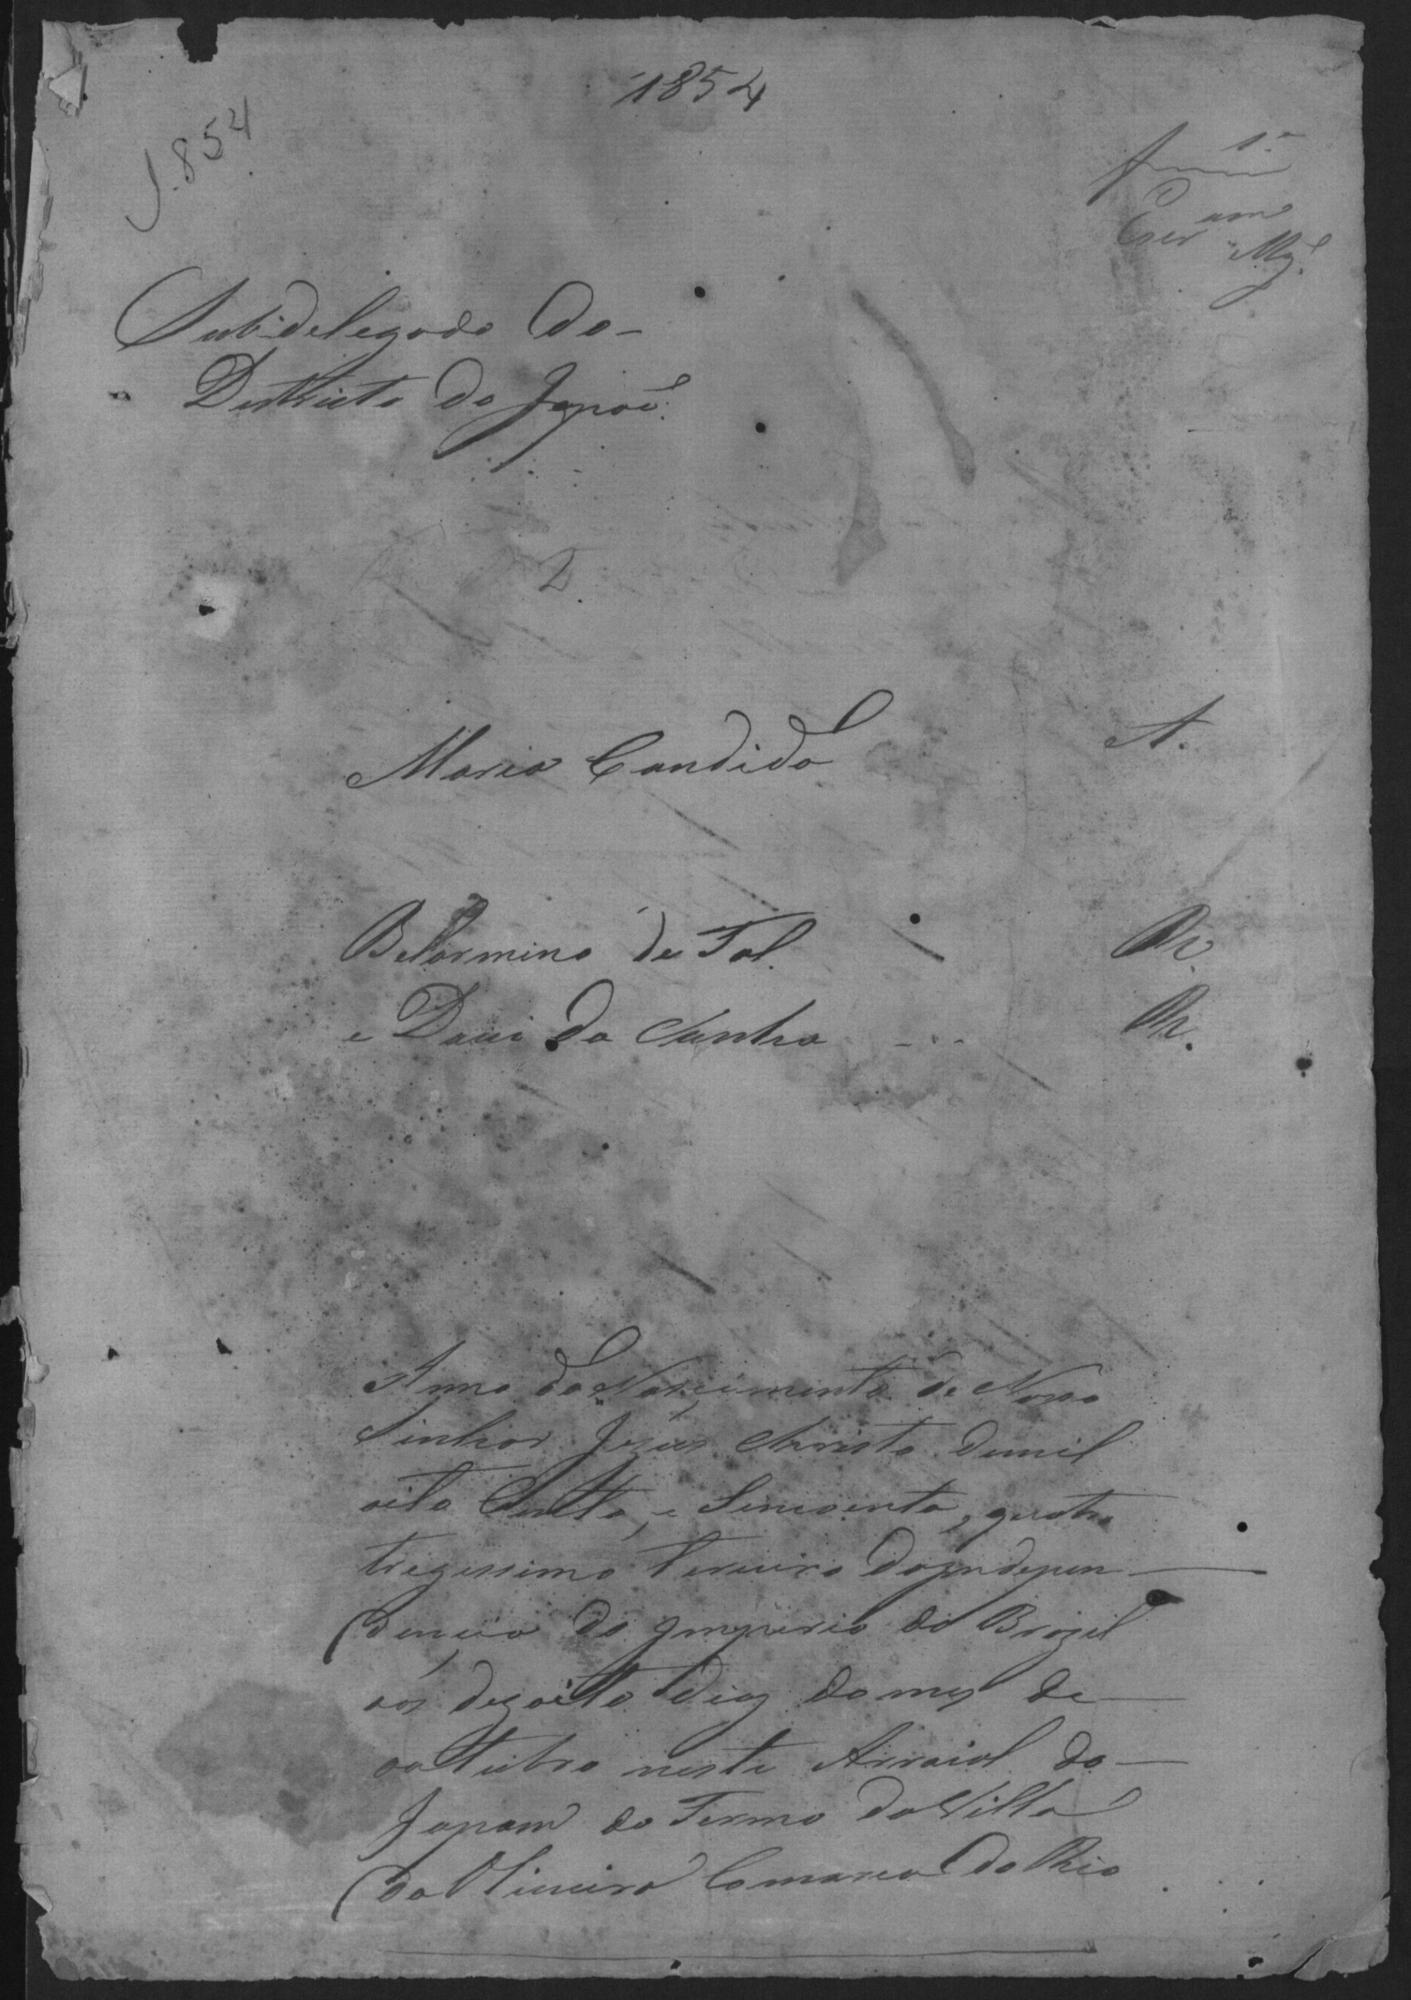 1854
1.854
1.º
Escr am M.el
Subdelegado do
Destricto do Japaõ
Maria Candida A.
Belarmino de Tal. R.
e Davi da Cunha R.
Anno do Nascimento de Nosso
Senhor Jezus Christo demil
oito Centto, e Sincoenta, quatro
tregessimo terceiro da Jndepen
dencia do Jmperio do Brazil
aos dezoito dias do mez de
outubro neste Arraial do
Japam do Termo da Villa
da Oliveira Comarca do Rio